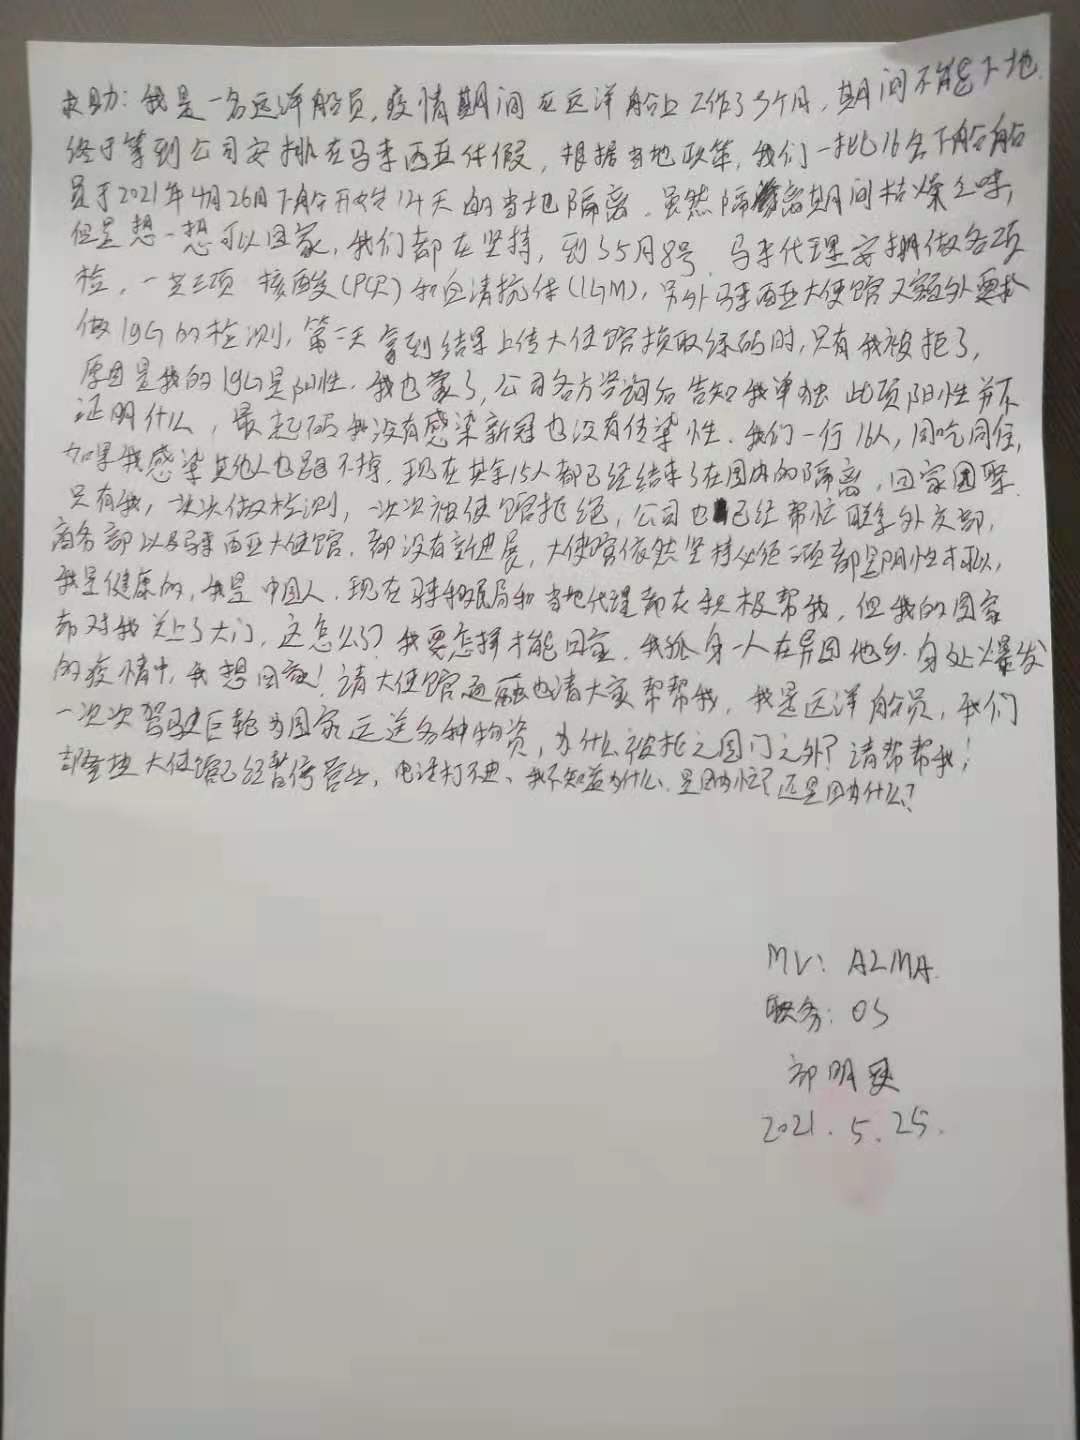 求助：我是一名远洋船员，疫情期间在远洋船上工作了9个月，期间不能下地
终于等到公司安排在马来西亚休假，根据当地政策，我们一批16名下船船
员于2021年4月26日下船开始14天的当地隔离。虽然隔离期间枯燥乏味，
但是想一想可以回家，我们都在坚持，到了5月8号，马来代理安排做各项
检，一共三项 核酸(PCR)和血清抗体(IGM)，另外马来西亚大使馆又额外要求
做IgG的检测，第二天拿到结果上传大使馆换取绿码时，只有我被拒了，
原因是我的IgG是阳性，我也蒙了，公司各方咨询后告知我单独此项阳性并不
证明什么，最起码我没有感染新冠也没有传染性。我们一行16人，同吃同住，
如果我感染其他人也跑不掉，现在其余15人都已经结束了在国内的隔离，回家团聚
只有我，一次次做检测，一次次被使馆拒绝，公司也已经帮忙联系外交部，
商务部以及马来西亚大使馆，都没有新进展，大使馆依然坚持必须三项都是阴性才可以，
我是健康的，我是中国人，现在马来移民局和当地代理都在积极帮我，但我的国家
却对我关上了大门，这怎么了？我要怎样才能回家，我孤身一人在异国他乡，身处爆发
的疫情中，我想回家！请大使馆 也请大家帮帮我，我是远洋船员，我们
一次次驾驶巨轮为国家运送各种物资，为什么被拒之国门之外？请帮帮我！
大使馆已经暂停营业，电话打不进、我不知道为什么，是因为忙？还是因为什么？
MV：ALMA
职务：OS
2021.5.25.